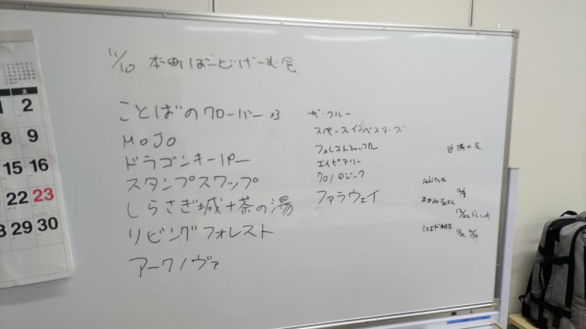 11/10 本町ぼーどげーむ会
ことばのクローバー ×3
MOJO
ドラゴンキーパー
スタンプスワップ
しらさぎ城+茶の湯
リビングフォレスト
アークノヴァ
ザ・クルー
スペースインベスターズ
フォレストシャッフル
エイピアリー
クロノロジック
ファラウェイ
近隣の会
1 2
8 9
15 16
22 23
29 30